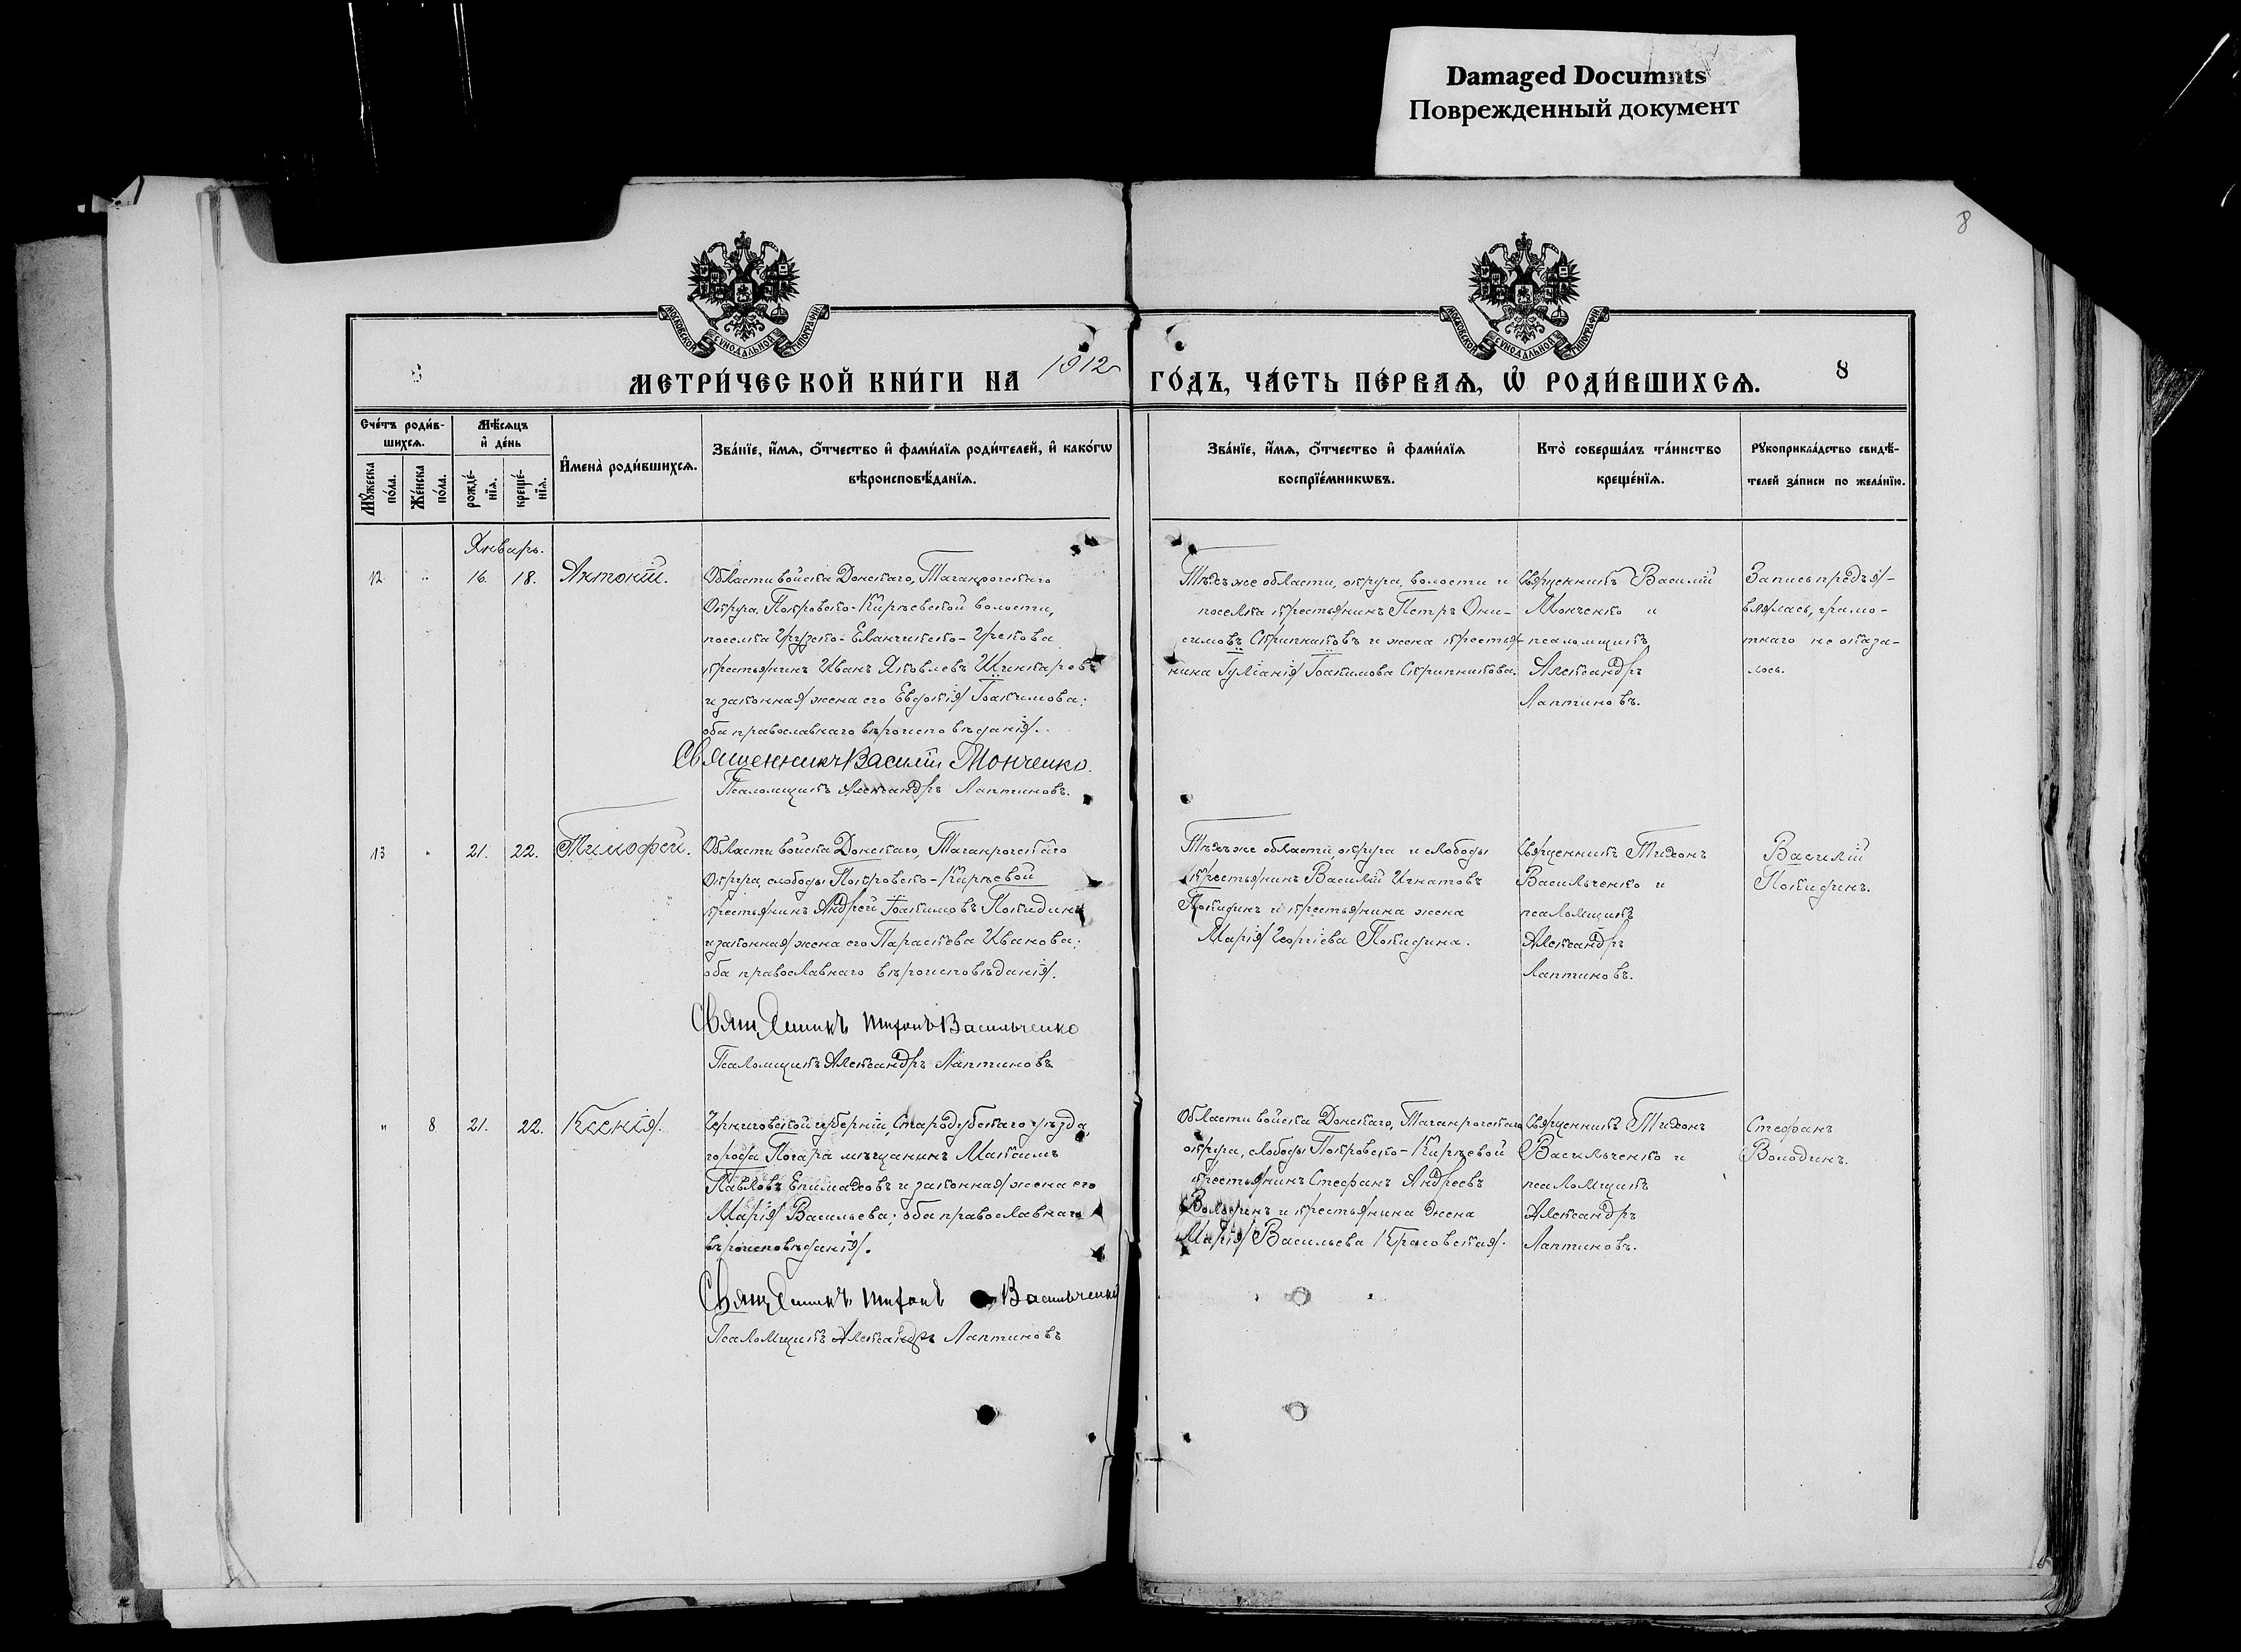 Damaged Documnts
Поврежденный документ
8
МОСКОВСКОЙ СУНОДАЛЬНОЙ ТИПОГРАФІИ
МОСКОВСКОЙ СУНОДАЛЬНОЙ ТИПОГРАФІИ
МЕТРИ́ЧЕСКОЙ КНИ́ГИ НА 1912 ГО́ДЪ, ЧА́СТЬ ПЕ́РВАѦ, Ѡ҆ РОДИ́ВШИХСѦ. 8
Сче́тъ роди́в-
шихсѧ.
Мꙋ́жеска по́ла.
Же́нска по́ла.
Мѣ́сѧцъ
и҆ де́нь
рожде́-нїѧ.
креще́-нїѧ.
И҆мена̀ роди́вшихсѧ.
Зва́нїе, и҆́мѧ, ѻ҆́тчество и҆ фами́лїѧ роди́телей, и҆ како́гѡ
вѣроисповѣ́данїѧ.
Зва́нїе, и҆́мѧ, ѻ҆́тчество и҆ фами́лїѧ
воспрїе́мникѡвъ.
Кто̀ соверша́лъ та́инство
креще́нїѧ.
Рꙋкоприкла́дство свидѣ́-
телей за́писи по жела́нїю.
Январь.
12 " 16. 18. Антоній.
Области войска Донскаго, Таганрогскаго
Округа, Покровско-Кирѣевской волости,
поселка Грузско-Еланчикско-Грекова
крестьянинъ Иванъ Яковлевъ Шинкаровъ
и законная жена его Евдокія Іоакимова;
оба православнаго вѣроисповѣданія.
Священникъ Василій Монченко.
Псаломщикъ Александръ Лаптиновъ.
Тѣхъ же области, округа, волости и
поселка крестьянинъ Петръ Они-
симовъ Скрипниковъ и жена крестья-
нина Іуліанія Іоакимова Скрипникова.
Священникъ Василій
Монченко и
псаломщикъ
Александръ
Лаптиновъ.
Запись предъя-
влялась, грамо-
тнаго не оказа-
лось.
13 " 21. 22. Тимофей.
Области войска Донскаго, Таганрогскаго
Округа, слободы Покровско-Кирѣевой
крестьянинъ Андрей Іоакимовъ Покидинъ
и законная жена его Параскева Иванова;
оба православнаго вѣроисповѣданія.
Священникъ Тихонъ Васильченко
Псаломщикъ Александръ Лаптиновъ
Тѣхъ же области, округа и слободы
крестьянинъ Василій Игнатовъ
Покидинъ и крестьянина жена
Марія Георгіева Покидина.
Священникъ Тихонъ
Васильченко и
псаломщикъ
Александръ
Лаптиновъ.
Василій
Покидинъ.
" 8 21. 22. Ксенія.
Черниговской губерніи, Стародубскаго уѣзда,
города Погара мѣщанинъ Максимъ
Павловъ Епимаховъ и законная жена его
Марія Васильева; оба православнаго
вѣроисповѣданія.
Священникъ Тихонъ Васильченко
Псаломщикъ Александръ Лаптиновъ
Области войска Донскаго, Таганрогскаго
округа, слободы Покровско-Кирѣевой
крестьянинъ Стефанъ Андреевъ
Володинъ и крестьянина жена
Марія Васильева Красовская.
Священникъ Тихонъ
Васильченко и
псаломщикъ
Александръ
Лаптиновъ.
Стефанъ
Володинъ.